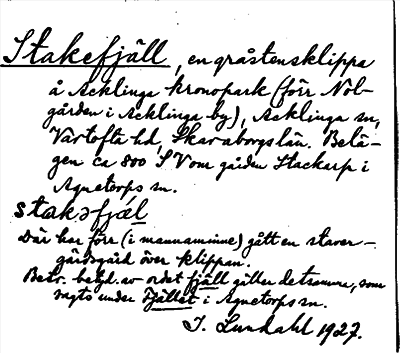 Stakefjäll, en gråstensklippa
å Acklinga kronopark (förr Nol-
gården i Acklinga by), Acklinga sn,
Vartofta hd, Skaraborgs län. Belä-
gen ca 800 SV om gården Stackarp i
Agnetorps sn.
stakəfjäl
Där har förr (i mannaminne) gått en staver-
gärdsgård över klippan.
Betr. betyd. av ordet fjäll gäller detsamma, som
sagts under Fjället i Agnetorps sn.
J. Lundahl 1927.